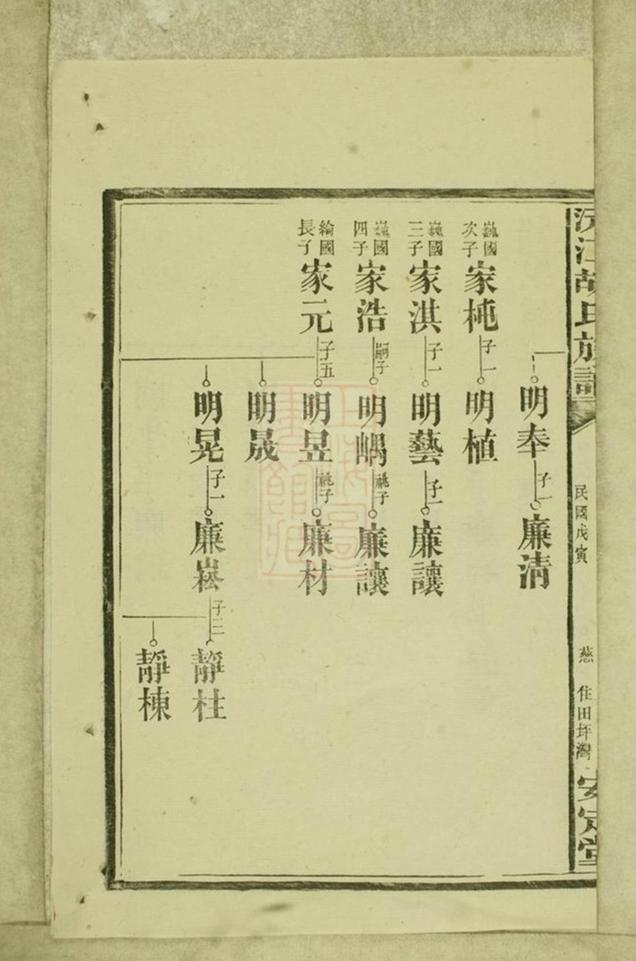 江胡氏族譜
民國戊寅
慈
住田坪灣
安定堂
明奉
子一
廉清
巍國次子
家杶
子一
明植
巍國三子
家淇
子一
明藝
子一
廉讓
巍國四子
家浩
嗣子
明嵎
祧子
廉讓
綸國長子
家元
子五
明昱
祧子
廉材
明晟
明晃
子一
廉崧
子二
靜柱
靜棟